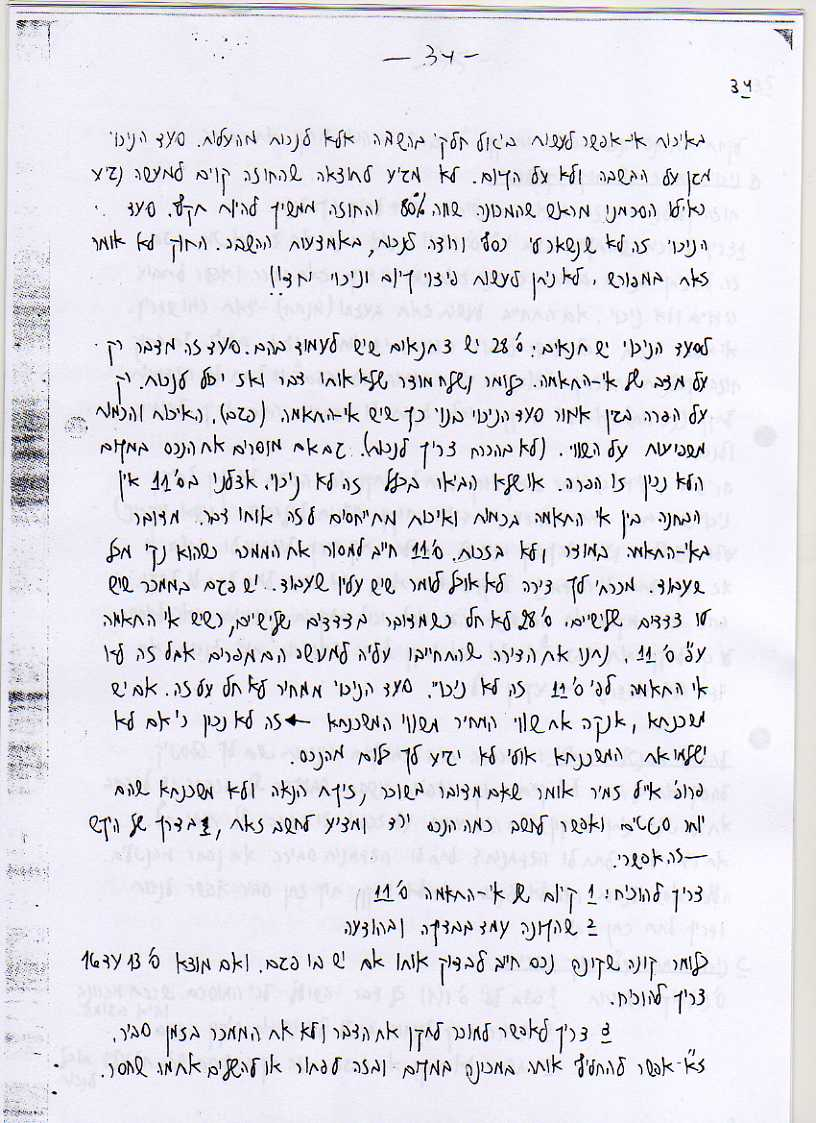 — 34 —
34
באיכות אי-אפשר לעשות ביטול חלקי בהשבה אלא לנכות מהעלות. סעד הניכוי
מגן על ההשבה ולא על הקיום. לא מגיע לתוצאה שהחוזה קוים למעשה נגיע
כאילו הסכמנו מראש שהמכונה שווה 80% והחוזה ממשיך להיות תקף. סעד
הניכוי זה לא שנשאר לי כסף ורוצה לנכות, באמצעות ההשבה. החוק לא אומר
זאת במפורש. לא ניתן לעשות פיצוי קיום וניכוי יחדיו!!
לסעד הניכוי יש תנאים: ס' 28 יש 3 תנאים שיש לעמוד בהם. סעד זה מדבר רק
על מצב של אי-התאמה. כלומר נשלח מוצר שלא אותו דבר ואז יוכל לנכות. רק
על הפרה בגין אימור סעד הניכוי בנוי כך שיש אי-התאמה (פגם). האיכות והכמות
משפיעות על השווי. (לא בהכרח צריך לנכות). גם אם מוסרים את הנכס במקום
הלא נכון זו הפרה. או שלא הביאו בכלל זה לא ניכוי. אצלנו בס' 11 אין
הבחנה בין אי התאמה בכמות ואיכות מתייחסים לזה אותו דבר. מדובר
באי-התאמה במוצר ולא בזכות. ס' 11 חייב למסור את הממכר כשהוא נקי מכל
שעבוד. מכרתי לך דירה לא אוכל לומר שיש עליו שעבוד. יש פגם בממכר שיש
לו צדדים שלישיים. ס' 28 לא חל כשמדובר בצדדים שלישיים, כשיש אי התאמה
עפ"י ס' 11. נתנו את הדירה שהתחייבו עליה למעשה הם מפרים אבל זה לא
אי התאמה לפי ס' 11 זה לא ניכוי. סעד הניכוי ממחיר לא חל על זה. אם יש
משכנתא, אנקה את שווי המחיר משווי המשכנתא ← זה לא נכון כי אם לא
ישלמו את המשכנתא אולי לא יגיע לך כלום מהנכס.
פרופ' אייל זמיר אומר שאם מדובר בשוכר, זיקת הנאה ולא משכנתא שהם
יותר סטטים ואפשר לחשב כמה הנכס ירד ומציע לחשב זאת, בדרך של היקש
— זה אפשרי.
צריך להוכיח: 1 קיום של אי-התאמה ס' 11
2 שהקונה עמד בבדיקה ובהודעה
כלומר קונה שקונה נכס חייב לבדוק אותו אם יש בו פגם. ואם מוצא ס' 13 עד 16
צריך להוכיח.
3 צריך לאפשר למוכר לתקן את הדבר ולא את הממכר בזמן סביר.
ז"א- אפשר להחליף אותה במכונה במקום ובזה לפתור או להשלים את מה שחסר.